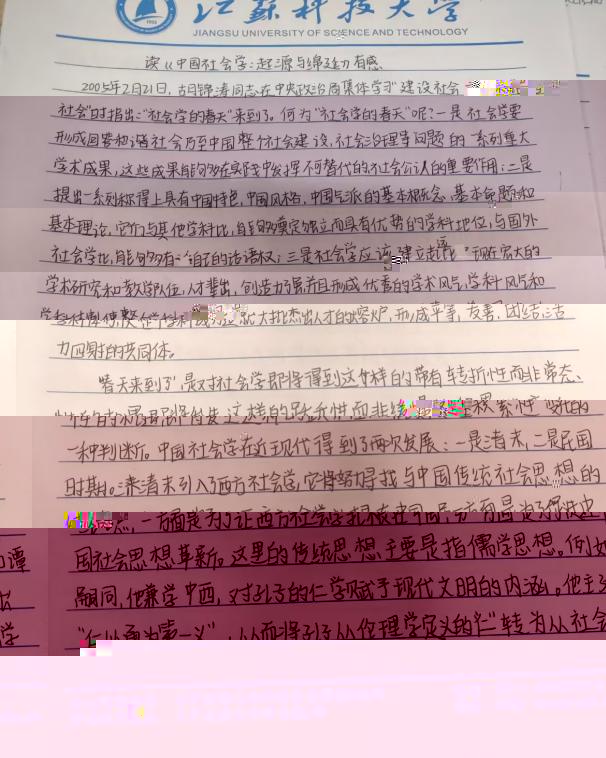 江苏科技大学
JIANGSU UNIVERSITY OF SCIENCE AND TECHNOLOGY
读《中国社会学:起源与绵延》有感
2005年2月21日,胡锦涛同志在中央政治局集体学习"建设社会
社会"时指出:"社会学的春天"来到了。何为"社会学的春天"呢?一是社会学要
形成回答和谐社会乃至中国整个社会建设,社会治理等问题的一系列重大
学术成果,这些成果能够在实践中发挥不可替代的社会公认的重要作用;二是
提出一系列称得上具有中国特色,中国风格,中国气派的基本概念、基本命题和
基本理论,它们与其他学科比,能够奠定独立而具有优势的学科地位,与国外
社会学比,能够有自己的话语权;三是社会学应该建立起庞大的
学术研究和教学队伍,人才辈出,创造力强并且形成优秀的学术风气,学科风气和
大批杰出人才的熔炉,形成平等,友善,团结,活
力四射的共同体。
"春天来到了"是对社会学即将得到这样的带有转折性而非常态、
一种判断。中国社会学在近现代得到了两次发展:一是清末,二是民国
时期。清末引入了西方社会学,它将努力寻找与中国传统社会思想的
国社会思想革新。这里的传统思想主要是指儒学思想。例如
嗣同,他兼学中西,对孔子的仁学赋予现代文明的内涵。他主
"仁以通为第一义",从而将孔子从伦理学定义的"仁"转为从社会
谭
学